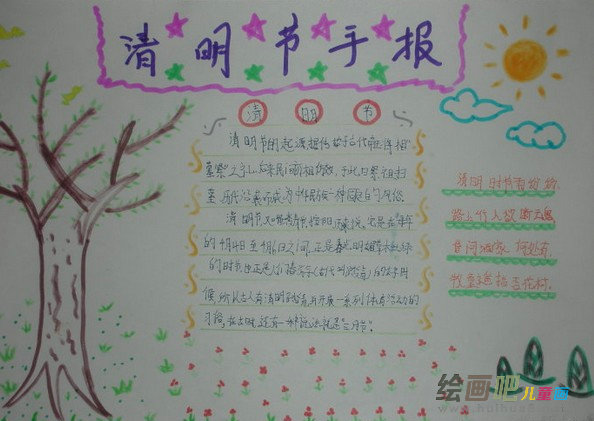 清明节手报
清明节
清明节的起源据传始于古代帝王将相
墓祭之礼后来民间亦相仿效于此日祭祖扫
墓历代沿袭而成为中华民族一种固定的风俗
清明节又叫踏青节按阳历来说它是在每年
的4月4日至4月6日之间正是春光明媚草木吐绿
的时节也正是人们春游(古代叫踏青)的好时
候所以古人有清明踏青并开展一系列体育活动的
习俗在古时还有一种说法就是"三月节".
清明时节雨纷纷
路上行人欲断魂
借问酒家何处有
牧童遥指杏花村.
绘画吧儿童网